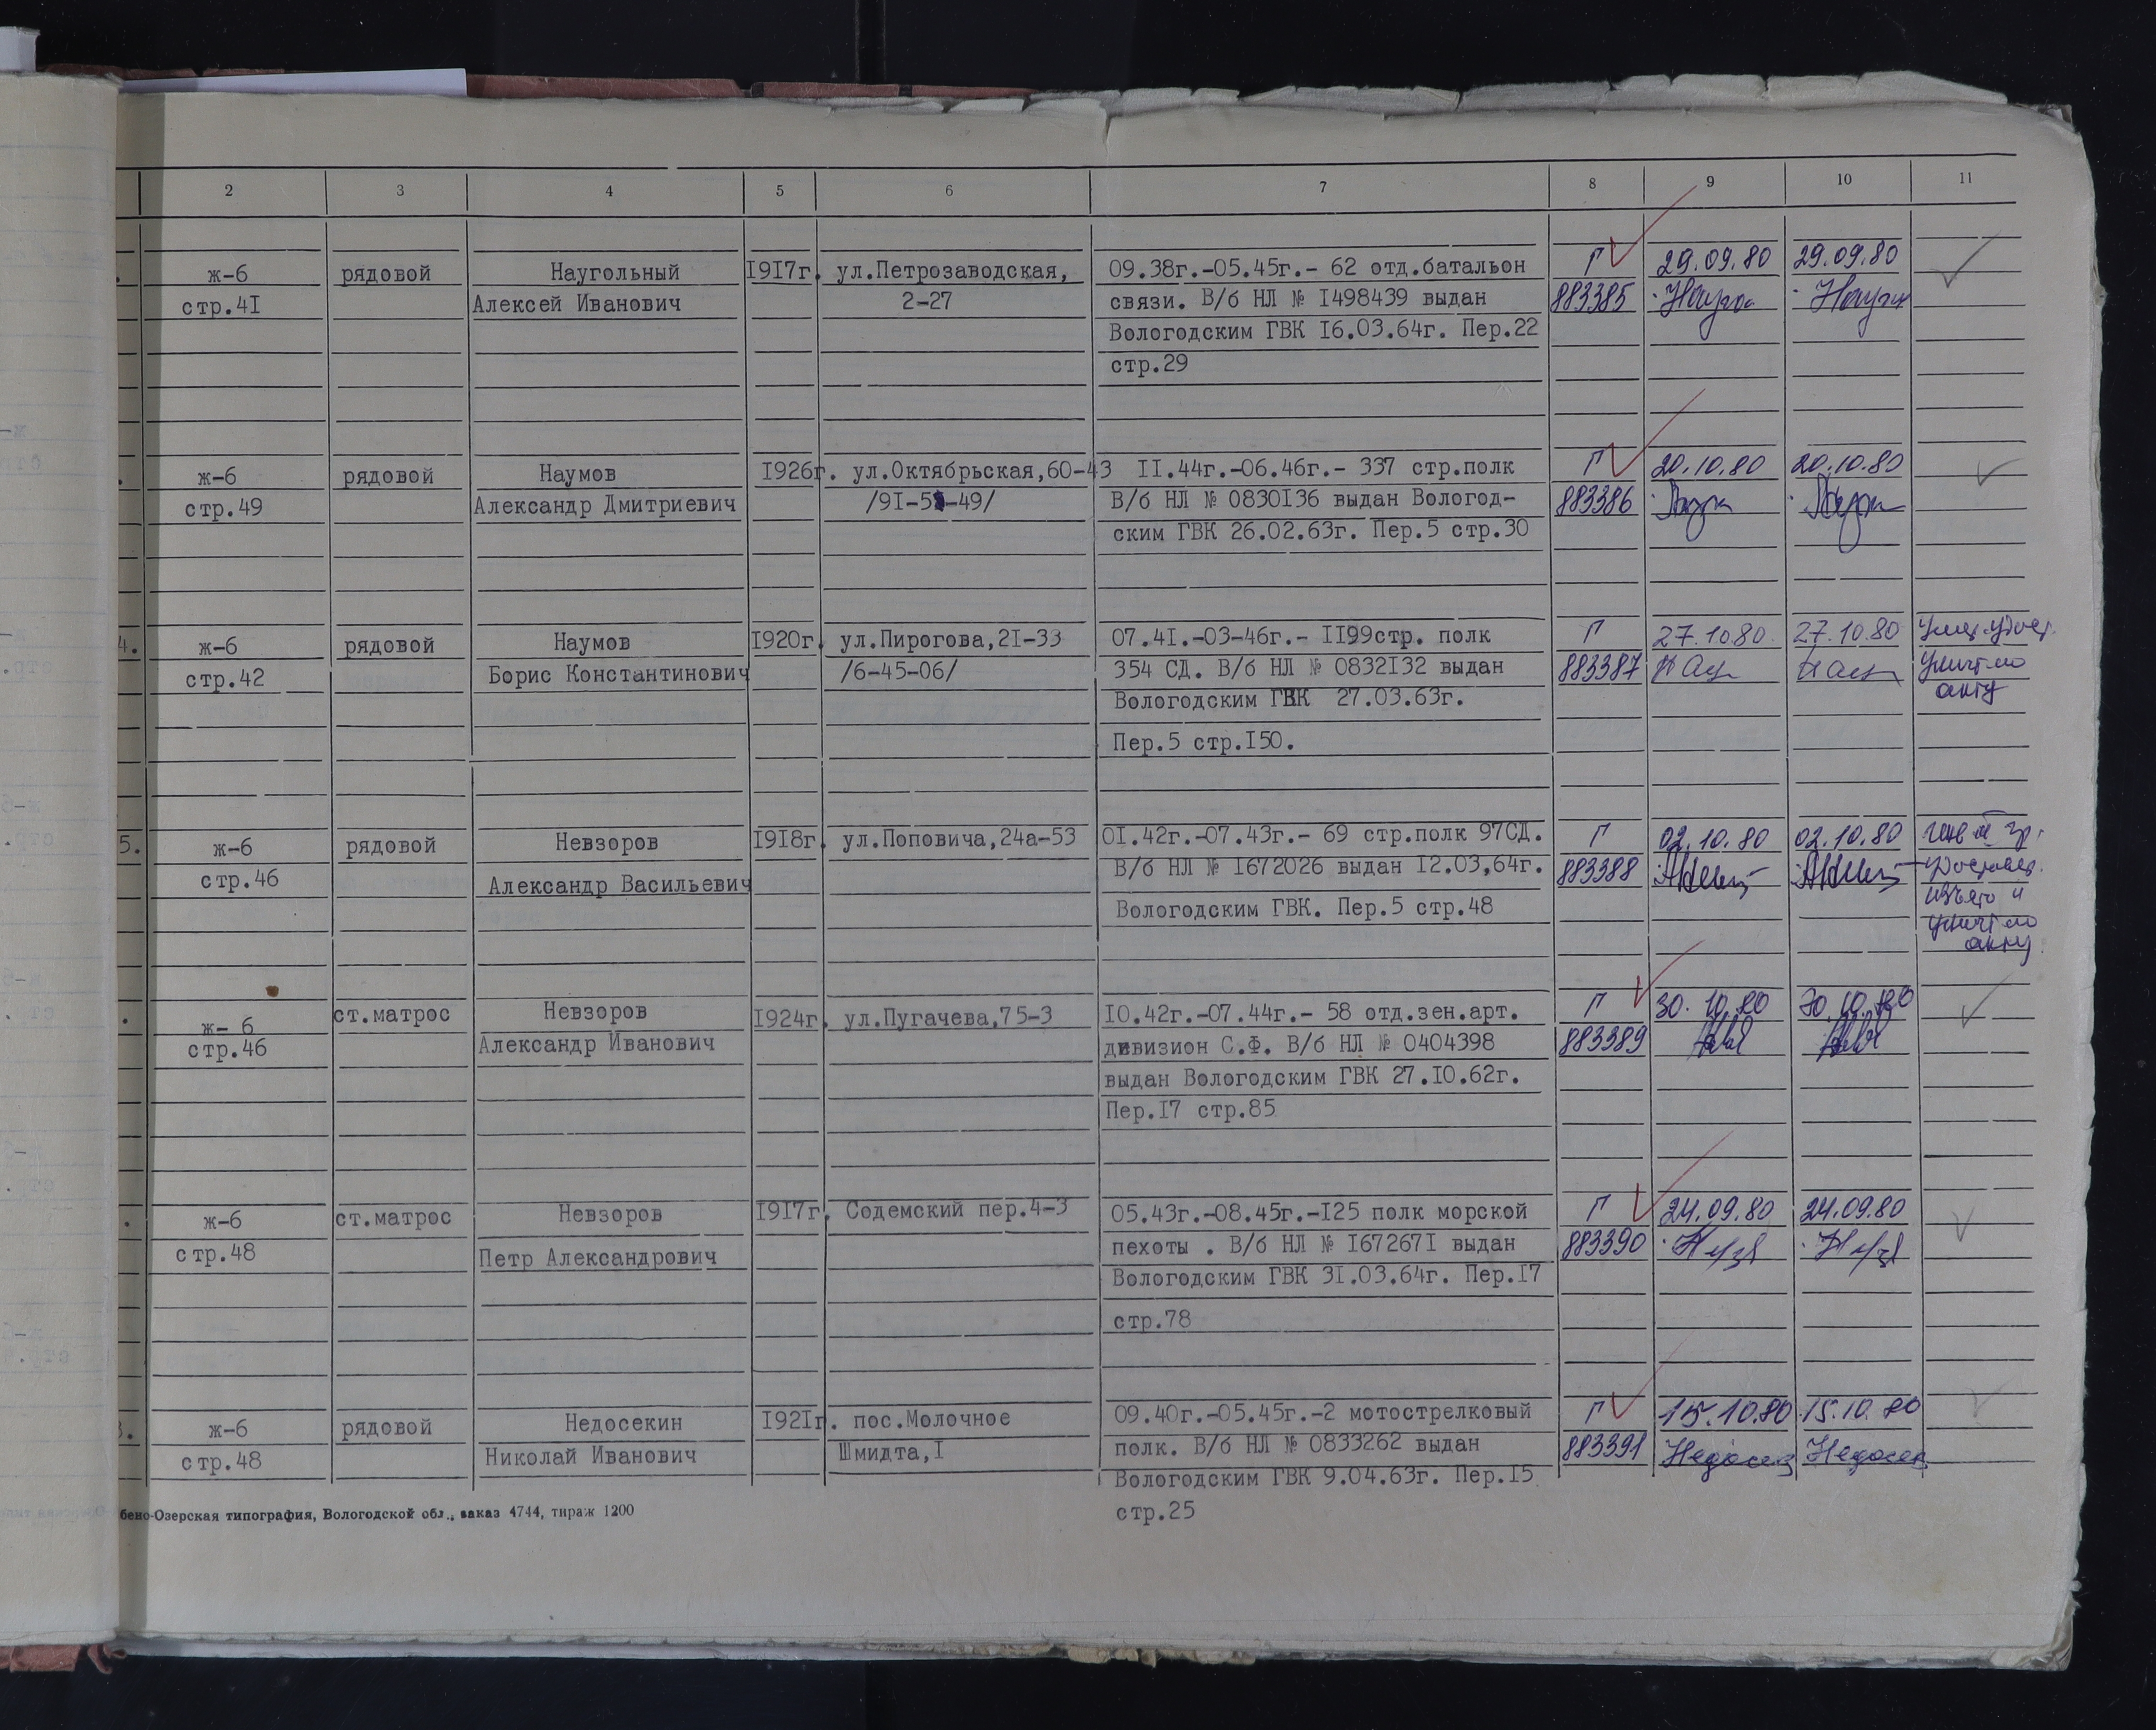 2 3 4 5 6 7 8 9 10 11
ж-6 рядовой Наугольный 1917г. ул.Петрозаводская, 09.38г.-05.45г.- 62 отд.батальон Г 29.09.80 29.09.80
стр.41 Алексей Иванович 2-27 связи. В/б НЛ № 1498439 выдан 883385
Вологодским ГВК 16.03.64г. Пер.22
стр.29
ж-6 рядовой Наумов 1926г. ул.Октябрьская,60-43 11.44г.-06.46г.- 337 стр.полк Г 20.10.80 20.10.80
стр.49 Александр Дмитриевич В/б НЛ № 0830136 выдан Вологод- 883386
ским ГВК 26.02.63г. Пер.5 стр.30
4. ж-6 рядовой Наумов 1920г. ул.Пирогова,21-33 07.41.-03-46г.- 1199стр. полк Г 27.10.80. 27.10.80
стр.42 Борис Константинович /6-45-06/ 354 СД. В/б НЛ № 0832132 выдан 883387 по
Вологодским ГВК 27.03.63г. акту
Пер.5 стр.150.
5. ж-6 рядовой Невзоров 1918г. ул.Поповича,24а-53 01.42г.-07.43г.- 69 стр.полк 97СД. Г 02.10.80 02.10.80
стр.46 Александр Васильевич В/б НЛ № 1672026 выдан 12.03,64г. 883388
Вологодским ГВК. Пер.5 стр.48 изъято и
по
акту.
ж- 6 ст.матрос Невзоров 1924г. ул.Пугачева,75-3 10.42г.-07.44г.- 58 отд.зен.арт. Г 30.10.80 30.10.80
стр.46 Александр Иванович дивизион С.Ф. В/б НЛ № 0404398 883389
выдан Вологодским ГВК 27.10.62г.
Пер.17 стр.85
ж-6 ст.матрос Невзоров 1917г. Содемский пер.4-3 05.43г.-08.45г.-125 полк морской Г 24.09.80 24.09.80
стр.48 Петр Александрович пехоты . В/б НЛ № 1672671 выдан 883390
Вологодским ГВК 31.03.64г. Пер.17
стр.78
ж-6 рядовой Недосекин 1921г. пос.Молочное 09.40г.-05.45г.-2 мотострелковый Г 15.10.80 15.10.80
стр.48 Николай Иванович Шмидта,1 полк. В/б НЛ № 0833262 выдан 883391
Вологодским ГВК 9.04.63г. Пер.15
стр.25
бено-Озерская типография, Вологодской обл., заказ 4744, тираж 1200